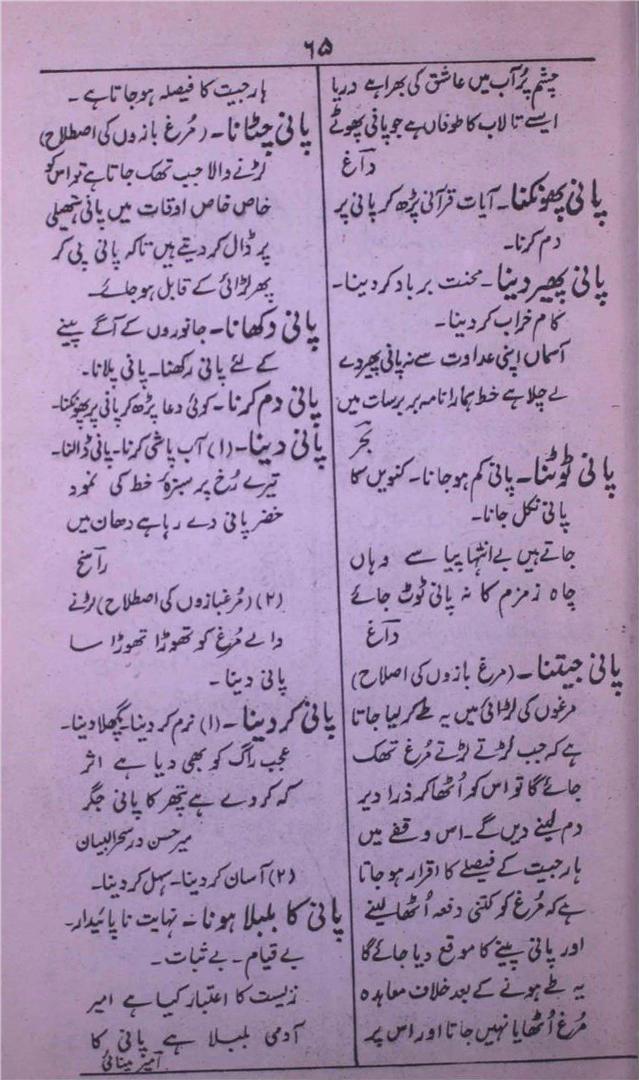 ۶۵
چشم پُر آب میں عاشق کی بھرا ہے دریا
ایسے تالاب کا طوفاں ہے جو پانی پھوٹے
داغ
پانی پھونکنا۔ آیات قرآنی پڑھ کر پانی پر
دم کرنا۔
پانی پھیر دینا۔ محنت برباد کر دینا۔
کام خراب کر دینا۔
آسماں اپنی عداوت سے نہ پانی پھیر دے
لے چلا ہے خط ہمارا نامہ بر برسات میں
بحر
پانی ٹوٹنا۔ پانی کم ہو جانا۔ کنویں کا
پانی نکل جانا۔
جاتے ہیں بے انتہا پیاسے وہاں
چاہ زمزم کا نہ پانی ٹوٹ جائے
داغ
پانی جیتنا۔ (مرغ بازوں کی اصلاح)
مرغوں کی لڑائی میں یہ طے کر لیا جاتا
ہے کہ جب لڑتے لڑتے مُرغ تھک
جائے گا تو اس کو اُٹھا کر ذرا دیر
دم لینے دیں گے۔ اس وقفے میں
ہار جیت کے فیصلے کا اقرار ہو جاتا
ہے کہ مُرغ کو کتنی دفعہ اُٹھا لینے
اور پانی پینے کا موقع دیا جائے گا
یہ طے ہونے کے بعد خلاف معاہدہ
مُرغ اُٹھایا نہیں جاتا اور اس پر
ہار جیت کا فیصلہ ہو جاتا ہے۔
پانی چٹانا۔ (مُرغ بازوں کی اصطلاح)
لڑنے والا جب تھک جاتا ہے تو اس کو
خاص خاص اوقات میں پانی ہتھیلی
پر ڈال کر دیتے ہیں تاکہ پانی پی کر
پھر لڑائی کے قابل ہو جائے۔
پانی دکھانا۔ جانوروں کے آگے پینے
کے لئے پانی رکھنا۔ پانی پلانا۔
پانی دم کرنا۔ کوئی دعا پڑھ کر پانی پر پھونکنا۔
پانی دینا۔ (۱) آب پاشی کرنا۔ پانی ڈالنا۔
تیرے رُخ پر سبزۂ خط کی نمود
خضر پانی دے رہا ہے دھان میں
راسخ
(۲) (مُرغبازوں کی اصطلاح) لڑنے
والے مُرغ کو تھوڑا تھوڑا سا
پانی دینا۔
پانی کر دینا۔ (۱) نرم کر دینا۔ پگھلا دینا۔
عجب راگ کو بھی دیا ہے اثر
کہ کر دے ہے پتھر کا پانی جگر
میر حسن در سحر البیان
(۲) آسان کر دینا۔ سہل کر دینا۔
پانی کا بلبلا ہونا۔ نہایت ناپائیدار۔
بے قیام۔ بے ثبات۔
زیست کا اعتبار کیا ہے امیر
آدمی بلبلا ہے پانی کا
امیر مینائی